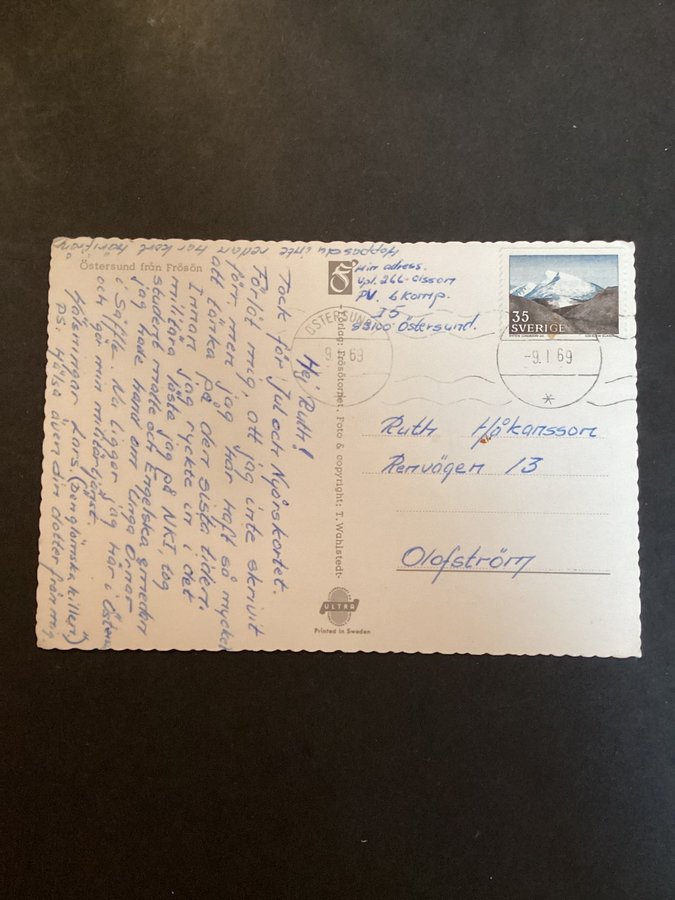 Östersund från Frösön
Hej Ruth!
Tack för Jul och Nyårskortet.
Förlåt mig, att jag inte skrivit
förr men jag har haft så mycket
att tänka på den sista tiden.
Innan jag ryckte in i det
militära läste jag på NKI, tog
student matte och Engelska
jag hade hand om Unga Örnar
i Säffle. Nu ligger jag här i
och gör min militärtjänst.
Hälsningar Lars. (Den glömska killen)
PS. Hälsa även din dotter från mig.
Hoppas du inte redan har kort härifrån
Min adress.
Vpl. 266 Olsson
PV. Komp.
I5
83100 Östersund.
Förlag: Frösötornet. Foto & copyright: T. Wahlstedt.
ULTRA
Printed in Sweden
ÖSTERSUND
9. 1 69
35
SVERIGE
-9. 1 69
*
Ruth Håkansson
Renvägen 13
Olofström